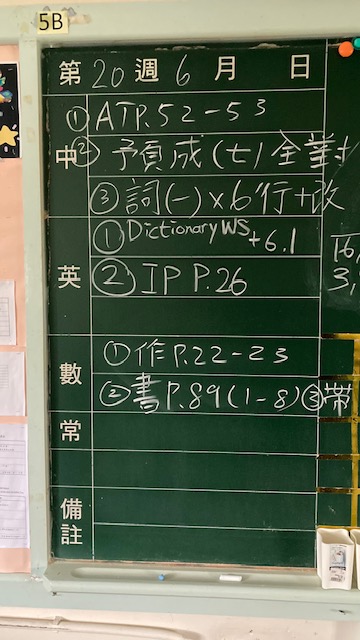 5B
第 20 週 6 月 日
① A T P.52-53
中 ② 預成(七)全對
③ 詞(一)×6行+改
① Dictionary WS +6.1
英 ② IP P.26
數 ① 作 P.22-23
② 書 P.89(1-8) ③帶
常
備註
16,
3,